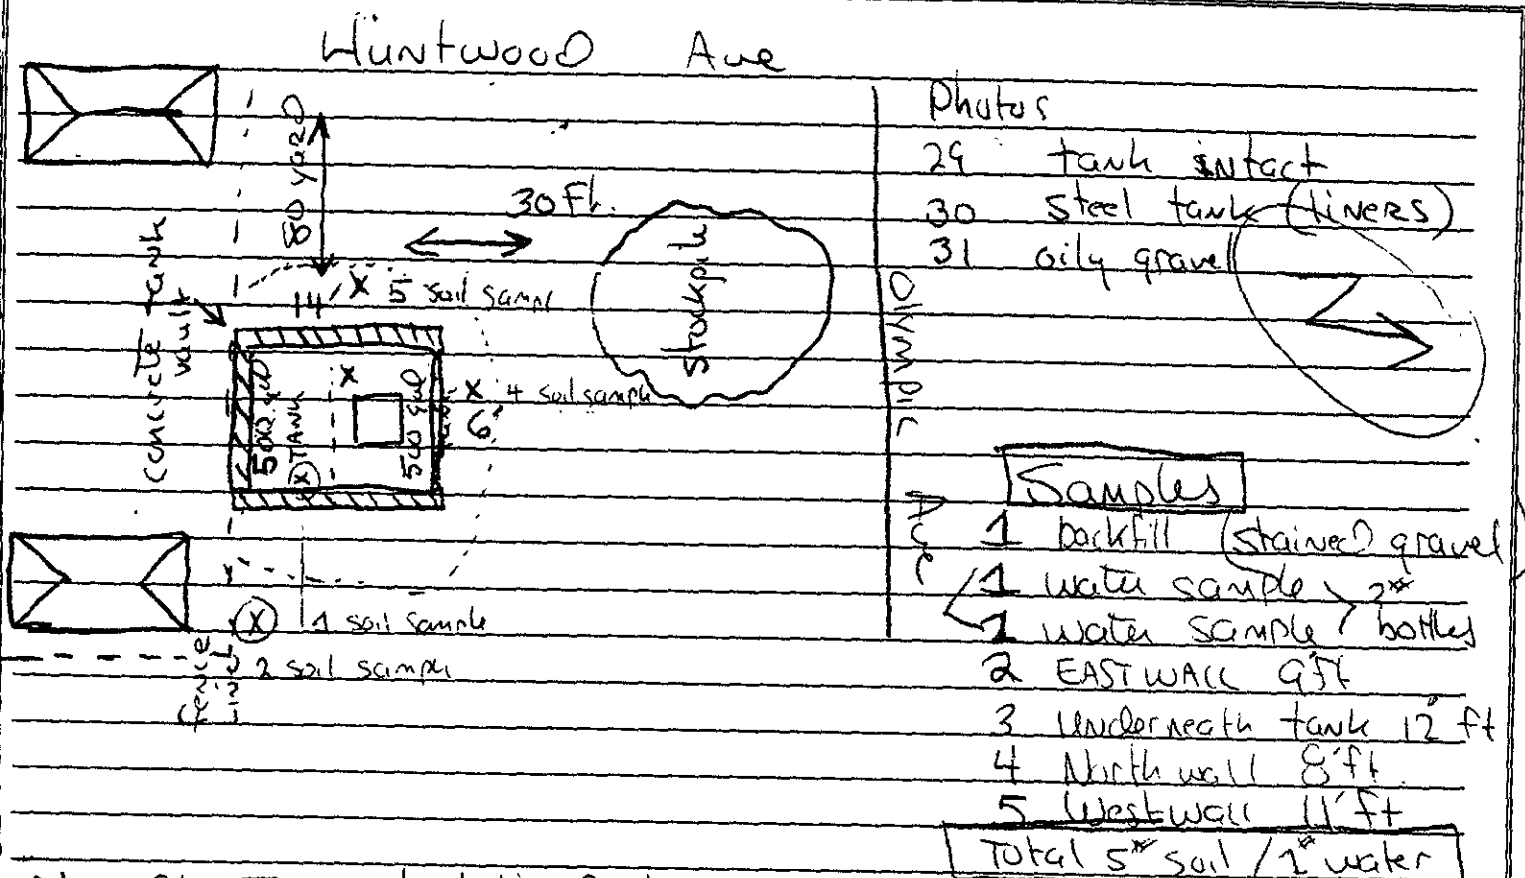 Huntwood Ave
80 yard
30 Ft.
concrete tank
vault
14' X 5 soil sampl
Stockpile
500 gal
TANK
X
X
500 gal
X 4 soil sample
6'
X 1 soil sample
2 soil sample
fence
line
Olympic
Ave
Photos
29 tank intact
30 Steel tank (liners)
31 oily gravel
Samples
1 backfill (stained gravel)
1 water sample
1 water sample
bottles
2 EAST WALL 9 ft
3 Underneath tank 12 ft
4 North wall 8 ft
5 West wall 11 ft
Total 5* soil / water